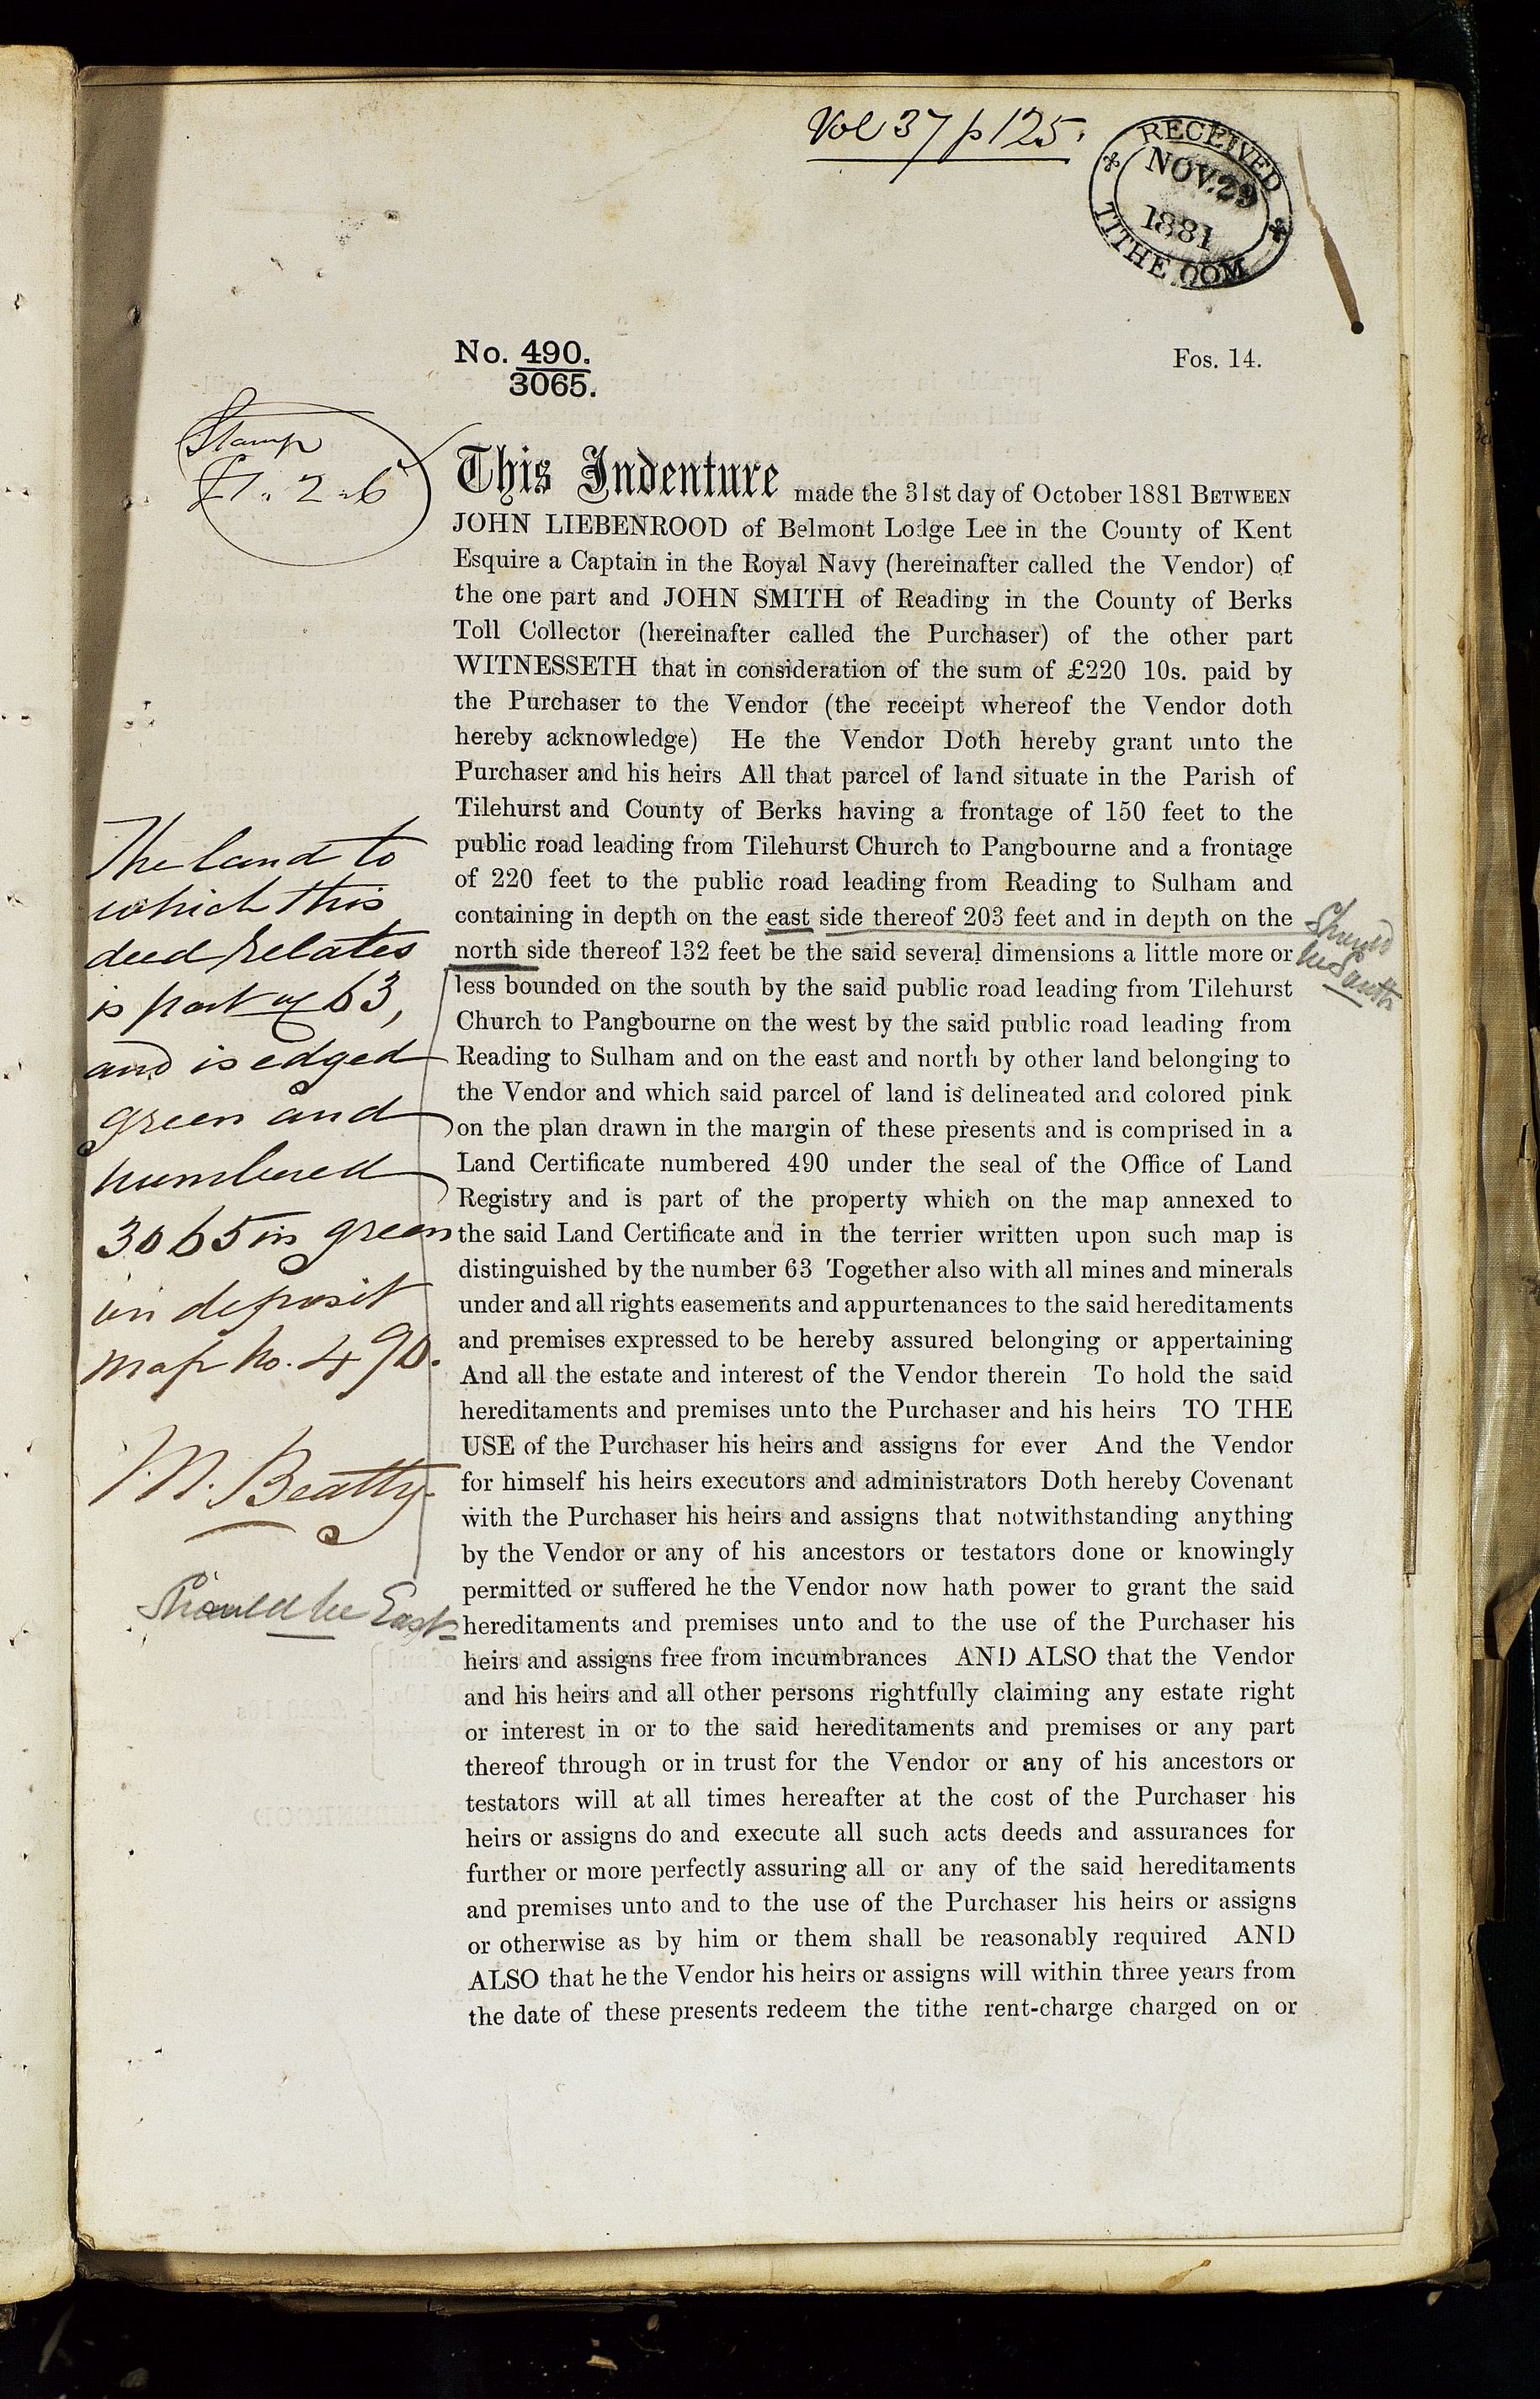 Vol 37 p 125.
RECEIVED
NOV. 29
1881
TITHE COM
No. 490.
3065.
Fos. 14.
Stamp
£1. 2. 6
This Indenture made the 31st day of October 1881 BETWEEN
JOHN LIEBENROOD of Belmont Lodge Lee in the County of Kent
Esquire a Captain in the Royal Navy (hereinafter called the Vendor) of
the one part and JOHN SMITH of Reading in the County of Berks
Toll Collector (hereinafter called the Purchaser) of the other part
WITNESSETH that in consideration of the sum of £220 10s. paid by
the Purchaser to the Vendor (the receipt whereof the Vendor doth
hereby acknowledge) He the Vendor Doth hereby grant unto the
Purchaser and his heirs All that parcel of land situate in the Parish of
Tilehurst and County of Berks having a frontage of 150 feet to the
public road leading from Tilehurst Church to Pangbourne and a frontage
of 220 feet to the public road leading from Reading to Sulham and
containing in depth on the east side thereof 203 feet and in depth on the
north side thereof 132 feet be the said several dimensions a little more or
less bounded on the south by the said public road leading from Tilehurst
Church to Pangbourne on the west by the said public road leading from
Reading to Sulham and on the east and north by other land belonging to
the Vendor and which said parcel of land is delineated and colored pink
on the plan drawn in the margin of these presents and is comprised in a
Land Certificate numbered 490 under the seal of the Office of Land
Registry and is part of the property which on the map annexed to
the said Land Certificate and in the terrier written upon such map is
distinguished by the number 63 Together also with all mines and minerals
under and all rights easements and appurtenances to the said hereditaments
and premises expressed to be hereby assured belonging or appertaining
And all the estate and interest of the Vendor therein To hold the said
hereditaments and premises unto the Purchaser and his heirs TO THE
USE of the Purchaser his heirs and assigns for ever And the Vendor
for himself his heirs executors and administrators Doth hereby Covenant
with the Purchaser his heirs and assigns that notwithstanding anything
by the Vendor or any of his ancestors or testators done or knowingly
permitted or suffered he the Vendor now hath power to grant the said
hereditaments and premises unto and to the use of the Purchaser his
heirs and assigns free from incumbrances AND ALSO that the Vendor
and his heirs and all other persons rightfully claiming any estate right
or interest in or to the said hereditaments and premises or any part
thereof through or in trust for the Vendor or any of his ancestors or
testators will at all times hereafter at the cost of the Purchaser his
heirs or assigns do and execute all such acts deeds and assurances for
further or more perfectly assuring all or any of the said hereditaments
and premises unto and to the use of the Purchaser his heirs or assigns
or otherwise as by him or them shall be reasonably required AND
ALSO that he the Vendor his heirs or assigns will within three years from
the date of these presents redeem the tithe rent-charge charged on or
The land to
which this
deed relates
is part of 63,
and is edged
green and
numbered
3065 in green
in deposit
map No. 490.
M. Beatty.
Should be East
Should
be South